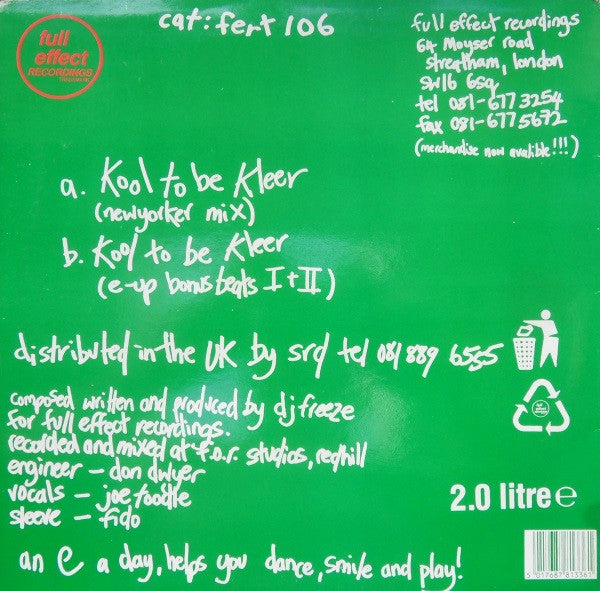 full
effect
RECORDINGS
TRADEMARK
cat: fert 106
full effect recordings
64 Moyser road
streatham, london
SW16 6SQ
tel 081-677 3254
fax 081-677 5672
(merchandise now avalible!!!)
a. Kool to be Kleer
(newyorker mix)
b. Kool to be Kleer
(e-up bonus beats I+II)
distributed in the UK by srd tel 081 889 6555
composed written and produced by dj freeze
for full effect recordings.
recorded and mixed at f.o.r. studios, redhill
engineer - don dwyer
vocals - joe toodle
sleeve - fido
full
effect
2.0 litre e
an e a day, helps you dance, smile and play!
5 017687 813361